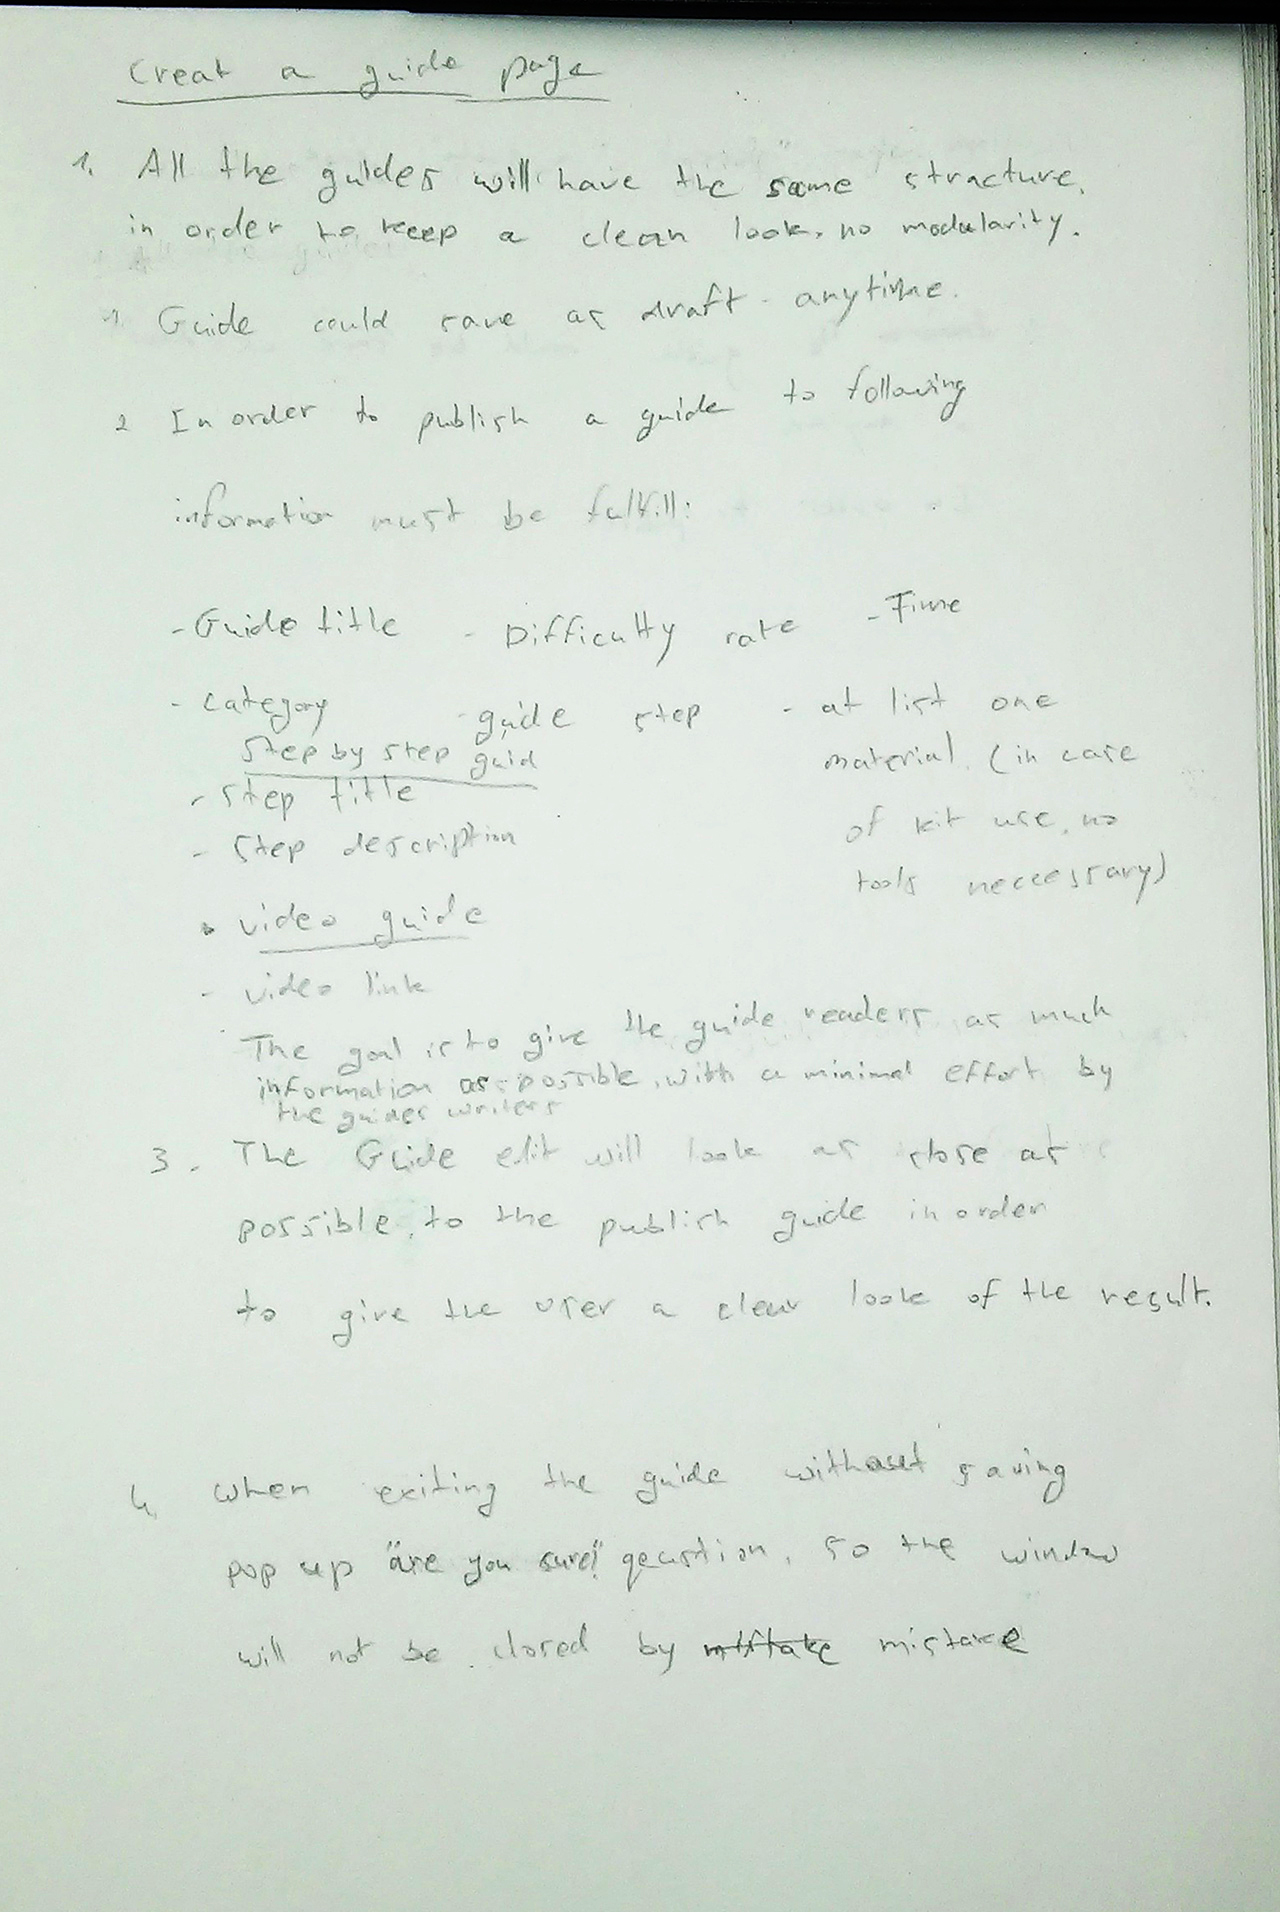 Creat a guide page
1. All the guides will have the same structure.
in order to keep a clean look. no modularity.
1. Guide could save as draft - anytime.
2 In order to publish a guide to following
information must be fulfill:
- Guide title - Difficulty rate - Time
- category - guide step - at list one
material. (in case
of kit use, no
tools neccessary)
step by step guid
- step title
- step description
• video guide
- video link
The goal is to give the guide readers as much
information as possible, with a minimal effort by
the guides writers
3. The Guide edit will look as close as
possible. to the publish guide in order
to give the user a clear look of the result.
4. when exiting the guide without saving
pop up "are you sure?" qeustion, so the window
will not be closed by mistake mistake